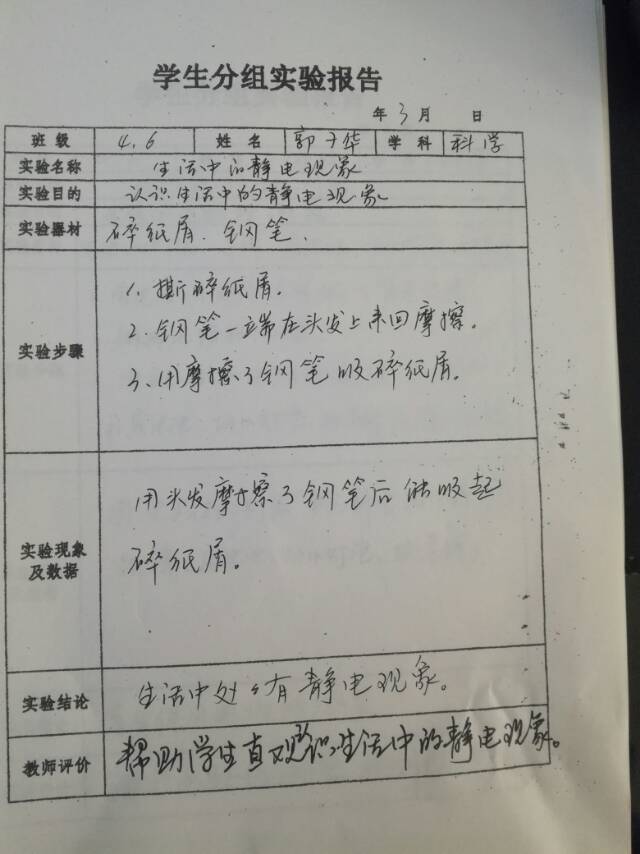 学生分组实验报告
年 3 月 日
班级 4.6 姓名 郭子华 学科 科学
实验名称 生活中的静电现象
实验目的 认识生活中的静电现象
实验器材 碎纸屑、钢笔、
实验步骤
1、撕碎纸屑。
2、钢笔一端在头发上来回摩擦。
3、用摩擦了钢笔吸碎纸屑。
实验现象及数据
用头发摩擦了钢笔后能吸起
碎纸屑。
实验结论 生活中处处有静电现象。
教师评价 帮助学生直观认识生活中的静电现象。